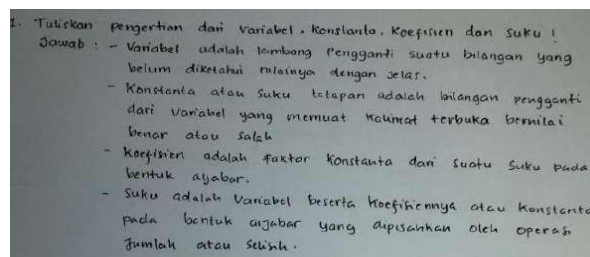 1. Tuliskan pengertian dari variabel, konstanta, koefisien dan suku !
Jawab : - Variabel adalah lambang pengganti suatu bilangan yang
belum diketahui nilainya dengan jelas.
- Konstanta atau suku tetapan adalah bilangan pengganti
dari variabel yang memuat kalimat terbuka bernilai
benar atau salah
- koefisien adalah faktor konstanta dari suatu suku pada
bentuk aljabar.
- suku adalah variabel beserta koefisiennya atau konstanta
pada bentuk aljabar yang dipisahkan oleh operasi
jumlah atau selisih.